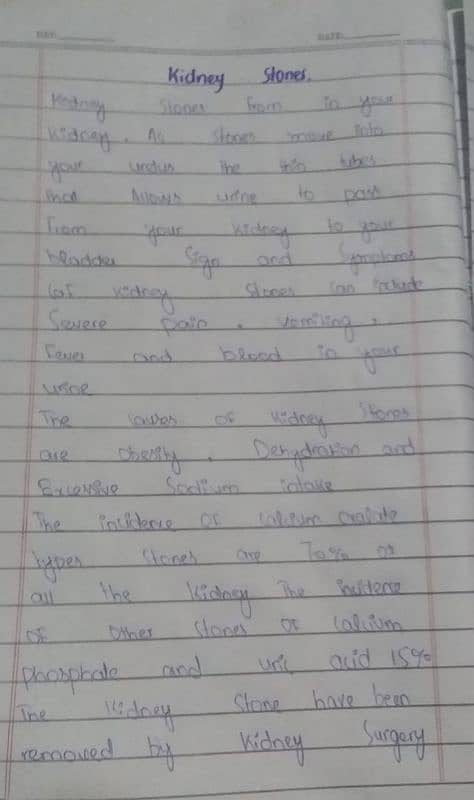 Kidney Stones.
Kedney Stones from in your
Kidney. As Stones move into
your the thin tubes
that Allows urine to pass
From your Kidney to your
bladder Sign and Symptoms
Kidney Stones can include
Severe pain, vomiting,
Fever and blood in your
urine
The causes of Kidney Stones
are obesity, Dehydration and
Excessive Sodium intake
The incidence of calcium oxalate
types Stones are 70% or
all the Kidney The incidence
of other Stones of calcium
phosphate and uric acid 15%
The Kidney Stone have been
removed by Kidney Surgery